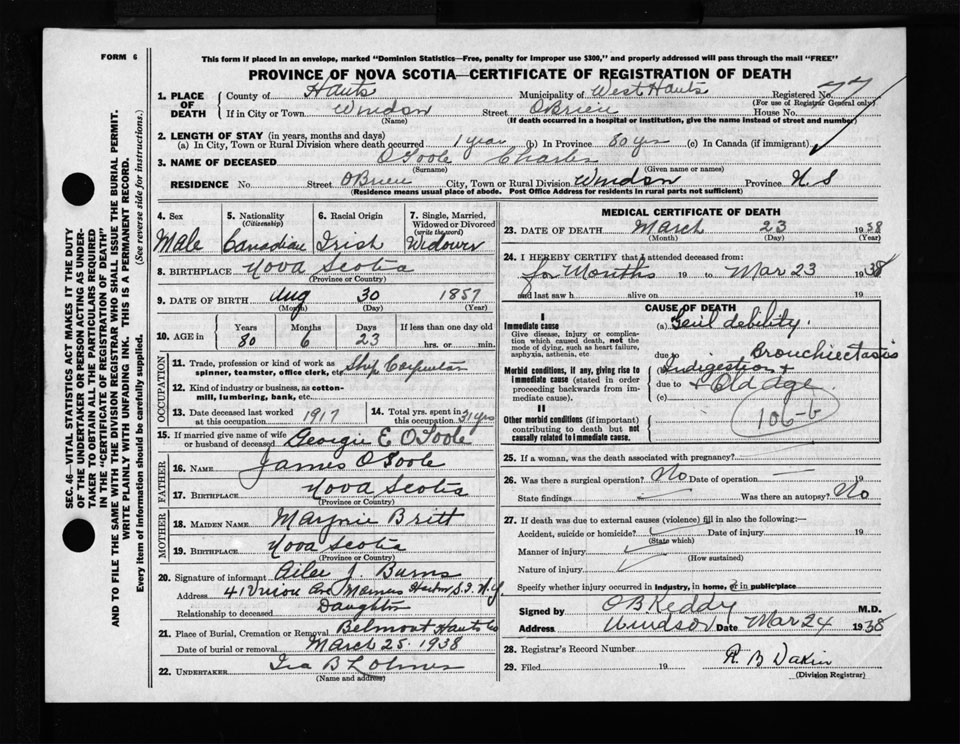 FORM 6
This form if placed in an envelope, marked "Dominion Statistics—Free, penalty for improper use $300," and properly addressed will pass through the mail "FREE"
PROVINCE OF NOVA SCOTIA—CERTIFICATE OF REGISTRATION OF DEATH
1. PLACE OF DEATH
County of Hants Municipality of West Hants Registered No. 77
(For use of Registrar General only)
If in City or Town Windsor Street OBrien House No.
(Name) (If death occurred in a hospital or institution, give the name instead of street and number)
2. LENGTH OF STAY (in years, months and days)
(a) In City, Town or Rural Division where death occurred 1 year (b) In Province 80 yrs (c) In Canada (if immigrant)
3. NAME OF DECEASED OToole Charles
(Surname) (Given name or names)
RESIDENCE No. Street OBrien City, Town or Rural Division Windsor Province N.S
(Residence means usual place of abode. Post Office Address for residents in rural parts not sufficient)
SEC. 46—VITAL STATISTICS ACT MAKES IT THE DUTY
OF THE UNDERTAKER OR PERSON ACTING AS UNDER-
TAKER TO OBTAIN ALL THE PARTICULARS REQUIRED
IN THE "CERTIFICATE OF REGISTRATION OF DEATH"
AND TO FILE THE SAME WITH THE DIVISION REGISTRAR WHO SHALL ISSUE THE BURIAL PERMIT.
WRITE PLAINLY WITH UNFADING INK. THIS IS A PERMANENT RECORD.
Every item of information should be carefully supplied. (See reverse side for instructions.)
4. Sex
Male
5. Nationality
(Citizenship)
Canadian
6. Racial Origin
Irish
7. Single, Married,
Widowed or Divorced
(write the word)
Widower
8. BIRTHPLACE Nova Scotia
(Province or Country)
9. DATE OF BIRTH Aug 30 1857
(Month) (Day) (Year)
10. AGE in
Years Months Days If less than one day old
80 6 23 hrs. or min.
OCCUPATION
11. Trade, profession or kind of work as
spinner, teamster, office clerk, etc. Ship Carpenter
12. Kind of industry or business, as cotton-
mill, lumbering, bank, etc.
13. Date deceased last worked
at this occupation 1917
14. Total yrs. spent in
this occupation 31 yrs
15. If married give name of wife
or husband of deceased Georgie E OToole
FATHER
16. NAME James OToole
17. BIRTHPLACE Nova Scotia
(Province or Country)
MOTHER
18. MAIDEN NAME Marjorie Britt
19. BIRTHPLACE Nova Scotia
(Province or Country)
20. Signature of informant J. Burns
Address 41 Union Ave Harbor S.I. N.Y.
Relationship to deceased Daughter
21. Place of Burial, Cremation or Removal Belmont Hants Co
Date of burial or removal March 25. 1938
22. UNDERTAKER Ira B Lohnes
(Name and address)
MEDICAL CERTIFICATE OF DEATH
23. DATE OF DEATH March 23 1938
(Month) (Day) (Year)
24. I HEREBY CERTIFY that I attended deceased from:
for Months 19 to Mar 23 1938
and last saw h alive on 19
CAUSE OF DEATH
I
Immediate cause
Give disease, injury or complica-
tion which caused death, not the
mode of dying, such as heart failure,
asphyxia, asthenia, etc
(a) Genl debility.
due to Bronchiectasis
Morbid conditions, if any, giving rise to
immediate cause (stated in order
proceeding backwards from im-
mediate cause).
Indigestion +
due to + Old age
(c)
106-b
II
Other morbid conditions (if important)
contributing to death but not
causally related to immediate cause.
25. If a woman, was the death associated with pregnancy?
26. Was there a surgical operation? No Date of operation 19
State findings Was there an autopsy? No
27. If death was due to external causes (violence) fill in also the following:—
Accident, suicide or homicide? Date of injury 19
(State which)
Manner of injury
(How sustained)
Nature of injury
Specify whether injury occurred in industry, in home, or in public place
Signed by O B Keddy M.D.
Address Windsor Date Mar 24 1938
28. Registrar's Record Number
29. Filed 19 R. B Dakin
(Division Registrar)